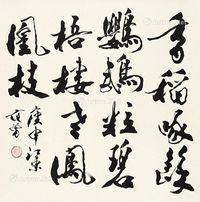 香稻啄餘
鸚鵡粒碧
梧棲老鳳
凰枝
庚申